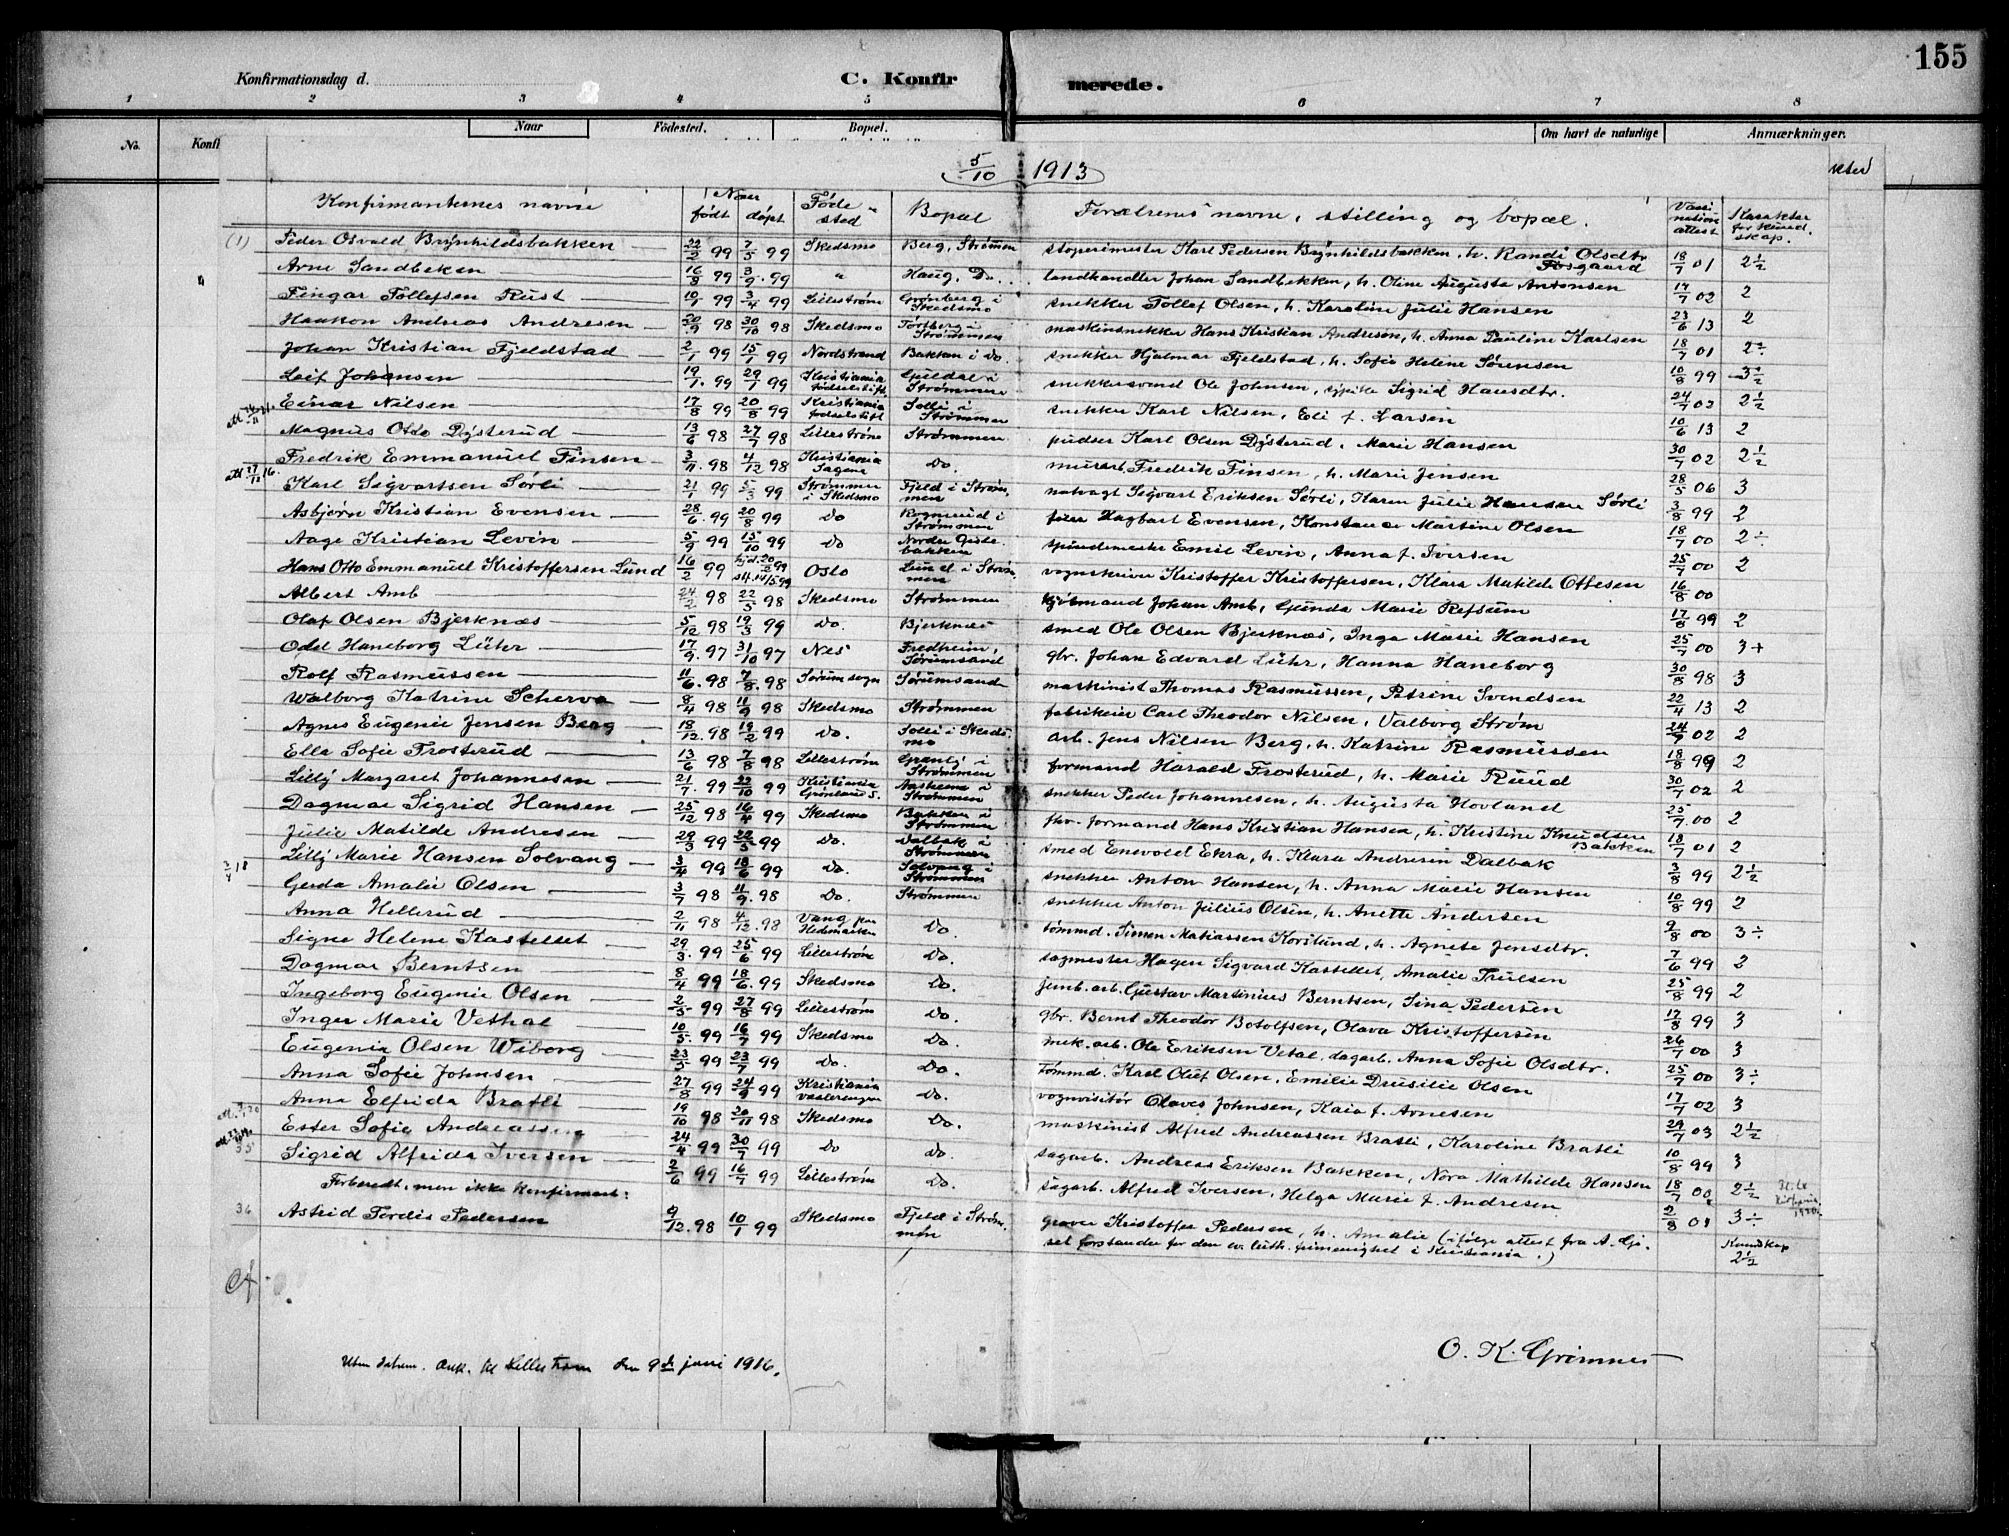 155
Konfirmationsdag d. C. Konfir merede.
1 2 3 4 5 6 7 8
No. Konfi Naar Fødested. Bopæl. Om havt de naturlige Anmærkninger.
5/10 1913
Konfirmanternes navne Naar født døptFøde-sted Bopæl Forældrenes navne, stilling og bopæl. Vaccinationsattest Karakter for kundskap.
(1) Peder Osvald Brynhildsbakken 22/2 99 7/5 99 Skedsmo Berg, Strømmen støperimester Karl Pedersen Brynhildsbakken, h. Randi Olsdtr. Fosgaard 18/7 01 2½
Arne Sandbakken 16/8 99 3/9 99 " Haug, Do. landhandler Johan Sandbakken, h. Oline Augusta Antonsen 17/7 02 2
Fingar Tollefsen Rust 99 3/4 99 Lillestrøm Grønberg i Skedsmo snekker Tollef Olsen, h. Karoline Julie Hansen 23/6 13 2
Haakon Andreas Andresen 20/9 98 30/10 98 Skedsmo Torfberg i Strømmen maskinsnekker Hans Kristian Andresen, h. Anna Pauline Karlsen 18/7 01 2÷
Johan Kristian Fjeldstad 2/1 99 15/1 99 Nordstrand Bakken i do. snekker Hjalmar Fjeldstad, h. Sofie Helene Sørensen 10/8 99 3½
Leif Johansen 19/1 99 29/1 99 Kristiania fødselsstift. Guldal i Strømmen snekkersvend Ole Johnsen, Sigrid Hansdtr. 24/7 02 2½
Einar Nilsen 17/8 99 20/8 99 Kristiania fødselstift Solli i Strømmen snekker Karl Nilsen, Eli f. Larsen 10/6 13 2
Magnus Otto Dysterud 13/6 98 27/7 98 Lillestrøm Strømmen pudser Karl Olsen Dysterud, Marie Hansen 30/7 02 2½
Fredrik Emmanuel Finsen 3/11 98 4/12 98 Kristiania Sagene Do. Fredrik Finsen, h. Marie Jensen 28/5 06 3
Karl Sigvartsen Sørli 21/1 99 5/3 99 Strømmen i Skedsmo Fjeld i Strømmen natvagt Sigvart Eriksen Sørli, Karen Julie Hansen Sørli 3/8 99 2
Asbjørn Kristian Evensen 28/6 99 20/8 99 Do Rognerud i Strømmen feier Hagbart Evensen, Konstanse Martine Olsen 18/7 00 2÷
Aage Kristian Levin 5/9 99 15/10 99 Do Nordre Gistebakken Emil Levin, Anna f. Iversen 25/7 00 2
Hans Otto Emmanuel Kristoffersen Lund 16/2 99 Oslo Lund i Strømmen vognskriver Kristoffer Kristoffersen, Klara Matilde Ottesen 16/8 00
Albert Amb 24/2 98 22/5 98 Skedsmo Strømmen Johan Amb, Gunda Marie Refsum 17/8 99 2
Olaf Olsen Bjerknæs 5/12 98 19/3 99 Do. Bjerknæs smed Ole Olsen Bjerknæs, Inga Marie Hansen 25/7 00 3+
Odd Haneborg Lühr 17/9 97 31/10 97 Nes Fredheim, Sørumsand gbr. Johan Edvard Lühr, Hanna Haneborg 30/8 98 3
Rolf Rasmussen 11/6 98 7/8 98 Sørum sogn Sørumsand maskinist Thomas Rasmussen, Petrine Svendsen 22/4 13 2
Walborg Katrine Scherva 8/4 98 11/9 98 Skedsmo Strømmen fabrikeier Carl Theodor Nilsen, Valborg Strøm 24/7 02 2
Agnes Eugenie Jensen Berg 18/12 98 19/2 99 Do. Solli i Skedsmo arb. Jens Nilsen Berg, h. Katrine Rasmussen 18/8 99 2
Ella Sofie Frosterud 13/6 98 7/8 98 Lillestrøm Granly i Strømmen formand Harald Frosterud, h. Marie Ruud 30/7 02 2
Lilly Margaret Johannesen 21/7 99 22/10 99 Kristiania Grønland S. Aasheim i Strømmen snekker Peder Johannesen, h. Augusta Hovland 25/7 00 2
Dagmar Sigrid Hansen 25/12 98 16/4 99 Skedsmo Bakken i Strømmen fhv. formand Hans Kristian Hansen, h. Kristine Knudsen Bakken 18/7 01 2
Julie Matilde Andresen 29/3 99 99 Do. Dalbak i Strømmen smed Enevold Ekra, h. Klara Andresen Dalbak 3/8 99 2½
Lilly Marie Hansen Solvang 3/4 99 18/6 99 Do. Solvang i Strømmen snekker Anton Hansen, h. Anna Marie Hansen 10/8 99 2
Gerda Amalie Olsen 3/7 98 11/9 98 Do. Strømmen snekker Anton Julius Olsen, h. Anette Andersen 9/8 00 3÷
Anna Hellerud 2/11 98 4/12 98 Vang paa Hedmarken Do. tømmd. Simen Matiassen Korslund, h. Agnete Jensdtr. 7/6 99 2
Signe Helene Kastellet 29/3 99 25/6 99 Lillestrøm Do. sagmester Hagen Sigvard Kastellet, Amalie Trulsen 25/8 99 2
Dagmar Berntsen 8/4 99 18/6 99 Skedsmo Do. jernb. arb. Gustav Martinius Berntsen, Sina Pedersen 17/8 99 3
Ingeborg Eugenie Olsen 2/5 99 27/8 99 Lillestrøm Do. gbr. Bernt Theodor Botolfsen, Olava Kristoffersen 26/7 00 3
Inger Marie Vethal 10/5 99 16/7 99 Skedsmo Do. mek. arb. Ole Eriksen Vetal, dagarb. Anna Sofie Olsdtr. 25/7 00 3÷
Eugenia Olsen Wiborg 23/5 99 23/7 99 Do. Do. tømmd. Karl Oluf Olsen, Emilie Drusilie Olsen 17/7 02 3
Anna Sofie Johnsen 27/8 99 24/9 99 Kristiania Vaalerengen Do. vognvisitør Olaves Johnsen, Kaia f. Arnesen 29/7 03 2½
Anna Elfrida Bratli 19/10 98 20/11 98 Skedsmo Do. maskinist Alfred Andreassen Bratli, Karoline Bratli 10/8 99 3
Ester Sofie Andreassen 24/4 99 30/7 99 Do Do. sagarb. Andreas Eriksen Bakken, Nora Mathilde Hansen 18/7 00 2½
35 Sigrid Alfrida Iversen 2/6 99 16/7 99 Lillestrøm Do. sagarb. Alfred Iversen, Helga Marie f. Andresen 2/8 01 3÷
Forberedt, men ikke konfirmert:
36 Astrid Tordis Pedersen 9/12 98 10/1 99 Skedsmo Fjeld i Strømmen graver Kristoffer Pedersen, h. Amalie (ifølge attest fra A. Gjø-
sel forstander for den ev. luth. frimenighet i Kristiania.) Kundskap 2½
Uten datum. Ank. til Lillestrøm den 9de juni 1916.
O. K. Grimnes